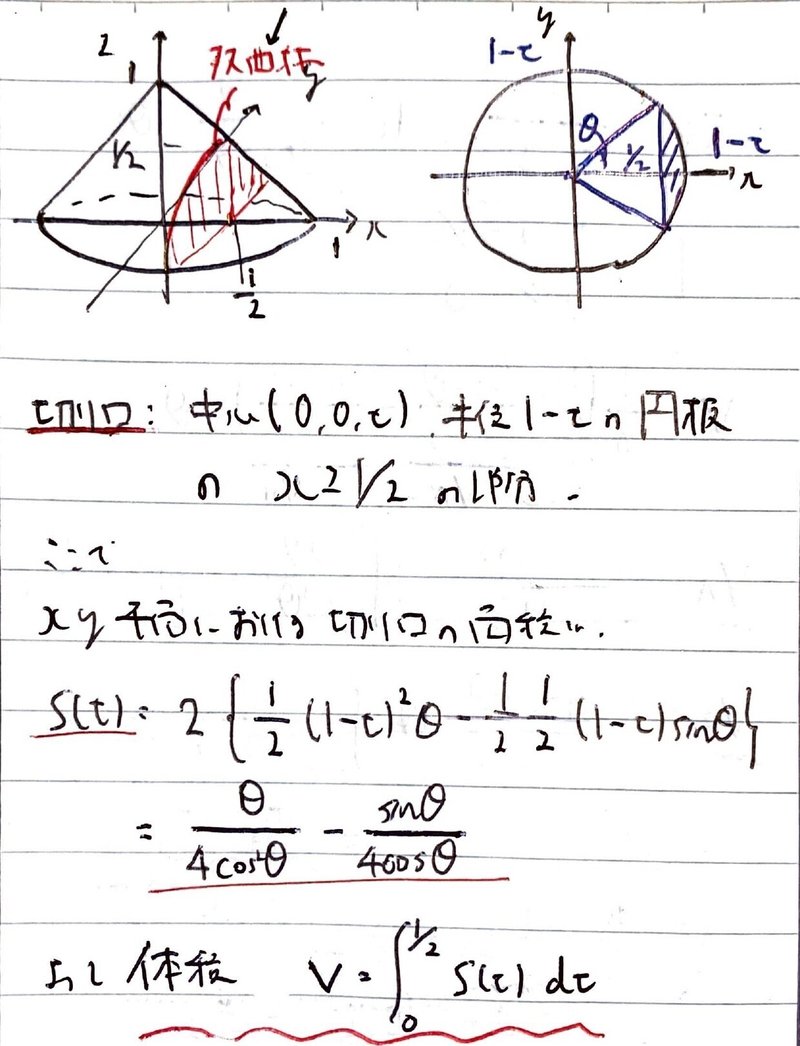 z
1
双曲线
y
1/2
x
1
1/2
y
1-t
θ
1/2
1-t
x
切り口: 中心(0,0,t), 半径1-tの円板
の x≧1/2 の部分.
ここで
xy平面における切り口の面積は.
S(t) = 2 { 1/2 (1-t)²θ - 1/2 1/2 (1-t) sinθ }
= θ/4cos²θ - sinθ/4cosθ
よって 体積 V = ∫₀^1/2 S(t) dt